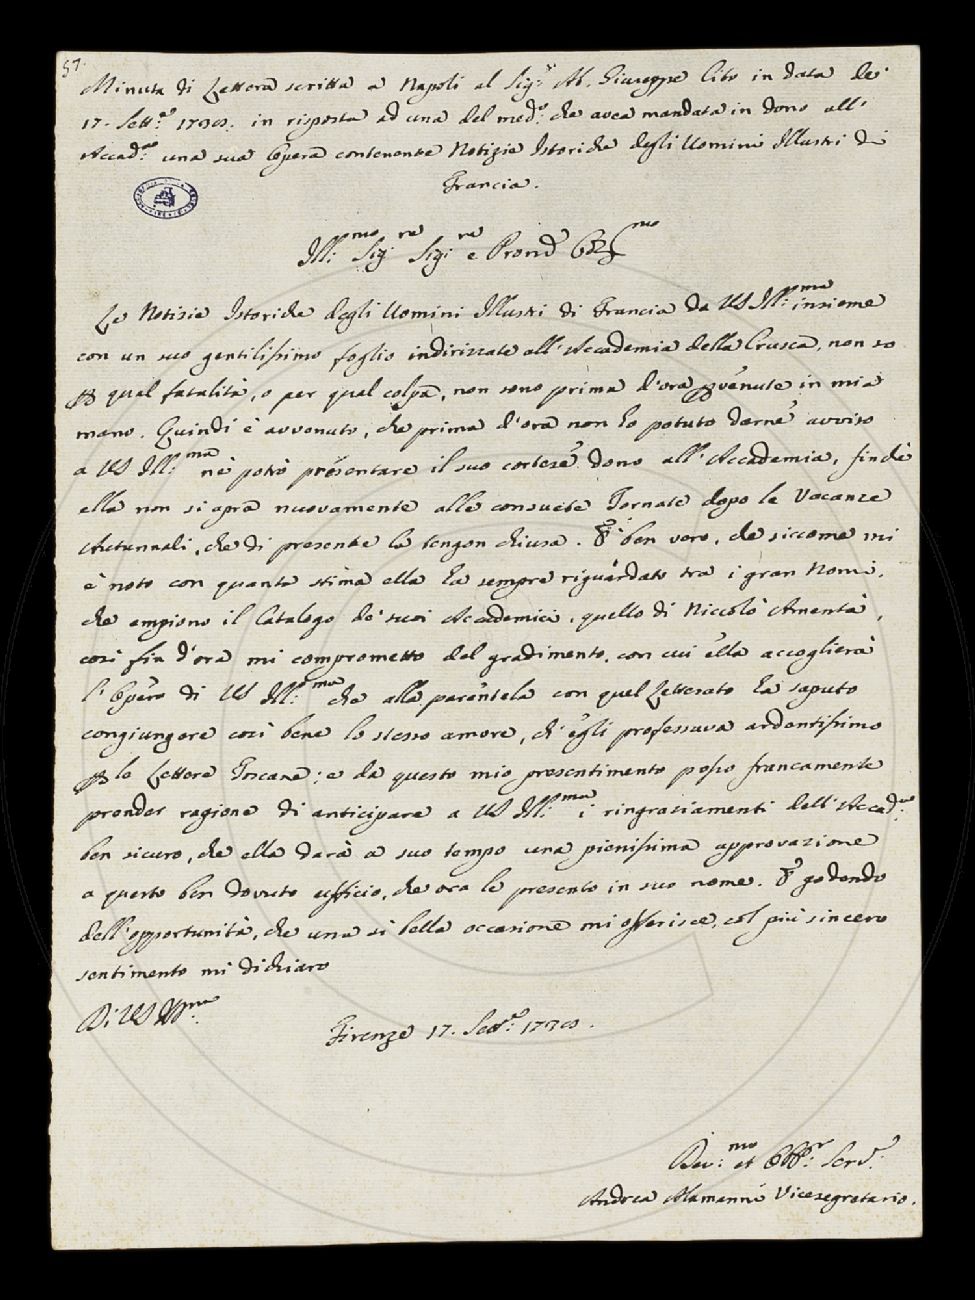 57.
Minuta di Lettera scritta a Napoli al Sig.r Ab. Giuseppe Cito in data dei
17. Sett.e in risposta ad una del med.o che avea mandata in dono all'
Accad.a una sua Opera contenente Notizie Istoriche degli Uomini Illustri di
Francia.
Ill.mo Sig.re Sig.re e Pron
Le Notizie Istoriche degli Uomini Illustri di Francia da VS Ill.ma insieme
con un suo gentilissimo foglio indirizzate all'Accademia della Crusca, non so
p qual fatalità, o per qual colpa, non sono prima d'ora pvenute in mia
mano. Quindi è avvenuto, che prima d'ora non ho potuto darne avviso
a VS Ill.ma nè potrò presentare il suo cortese dono all'Accademia, finchè
ella non si apra nuovamente alle consuete Tornate dopo le Vacanze
Autunnali, che di presente la tengon chiusa. È ben vero, che siccome mi
è noto con quanta stima ella ha sempre riguardato tra i gran Nomi,
che empiono il Catalogo de' suoi Accademici, quello di Niccolò Amenta,
così fin d'ora mi comprometto del gradimento, con cui ella accoglierà
l'Opera di VS Ill.ma che alla parentela con quel Letterato ha saputo
congiungere così bene lo stesso amore, ch'egli professava ardentissimo
p le Lettere Toscane; e da questo mio presentimento posso francamente
prender ragione di anticipare a VS Ill.ma i ringraziamenti dell'Accad.a
ben sicuro, che ella darà a suo tempo una pienissima approvazione
a questo ben dovuto ufficio, che ora le presento in suo nome. E godendo
dell'opportunità, che una sì bella occasione mi offerisce, col più sincero
sentimento mi dichiaro
Di VS Ill.ma
Firenze 17. Sett.e
Dev.mo et Obb.r Serv.
Andrea Alamanni Vicesegretario.